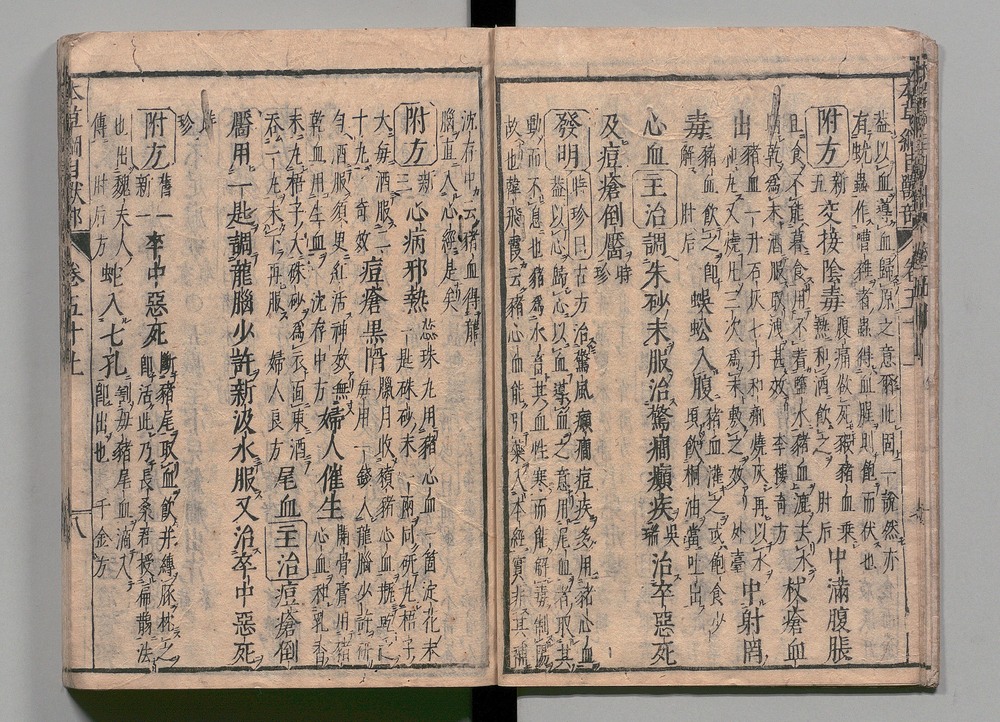 蓋以血導血歸原之意爾此固一說然亦
有蚘蟲作嘈雜者蟲雜血腥則飽而伏也
附方 新五 交接陰毒 腹痛欲死豭豬血乘熱和酒飲之 肘后 中滿腹脹
旦食不能暮食用不着鹽水豬血漉去水
晒乾為末酒服取洩甚效 李樓奇方 杖瘡血
出 豬血一升石灰七升和劑燒灰再以水
和丸又燒凡三次為末敷之效 外臺 中射罔
毒 豬血飲之即解 肘后 蜈蚣入腹 豬血灌之或飽食少頃飲桐油當吐出
心血 主治 調朱砂末服治驚癇癲疾 吳瑞 治卒惡死
及痘瘡倒黶 時珍
發明 時珍曰古方治驚風癲癇痘疾多用豬心血
蓋以心歸心以血導血之意用尾血者取其
動而不息也豬為水畜其血性寒而能解毒制陽
故也韓飛霞云豬心血能引藥入本經實非其補
沈存中云豬血得龍
腦直入心經是矣
附方 新三 心病邪熱 蕊珠丸用豬心血一箇淀花末
一匙硃砂末一兩同研丸梧子
大每酒服二十九 奇效 痘瘡黑陷 臘月收豶豬心血瓶乾之
每用一錢入龍腦少許研
勻酒服須臾紅活神效無
乾血用生血 沈存中方 婦人催生 開骨膏用豬心血和乳香
末丸梧子大硃砂為衣面東酒
吞一丸未下再服 婦人良方 尾血 主治 痘瘡倒
黶用一匙調龍腦少許新汲水服又治卒中惡死
時珍
附方 舊一新一 卒中惡死 斷豬尾取血飲并縛豚枕之
即活此乃長桑君授扁鵲法
也出魏夫人傳 肘后方 蛇入七孔 割母豬尾血滴入
即出也 千金方
本草綱目獸部 卷五十上 八